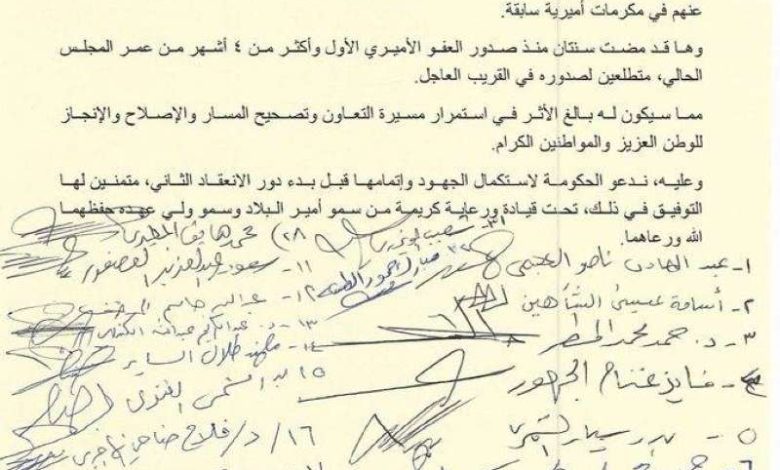 عنهم في مكرمات أميرية سابقة.
وها قد مضت سنتان منذ صدور العفو الأميري الأول وأكثر من ٤ أشهر من عمر المجلس
الحالي، متطلعين لصدوره في القريب العاجل.
مما سيكون له بالغ الأثر في استمرار مسيرة التعاون وتصحيح المسار والإصلاح والإنجاز
للوطن العزيز والمواطنين الكرام.
وعليه، ندعو الحكومة لاستكمال الجهود وإتمامها قبل بدء دور الانعقاد الثاني، متمنين لها
التوفيق في ذلك، تحت قيادة ورعاية كريمة من سمو أمير البلاد وسمو ولي عهده حفظهما
الله ورعاهما.
١- عبد الهادي ناصر العجمي
٢- أسامة عيسى الشاهين
٣- د. حمد محمد المطر
فايز غنام الجمهور
٥ - بدر سيار الشمري
٦
٢٨) محمد هايف المطيري
١١ - سعود عبدالعزيز العصفور
١٢ - عبدالله جاسم
١٣ - د. عبدالكريم عبدالله الكندري
١٤ - مهند طلال الساير
١٥
١٦ / د/ فلاح ضاحي الهاجري